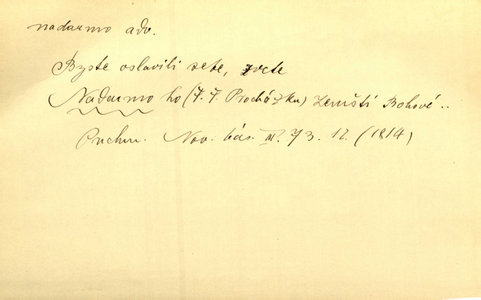 nadarmo adv.
Byste oslavili sebe, zvete
Nadarmo ho (F. F. Procházku) zemští Bohové..
Puchm. Nov. bás. III. 73. 12. (1814)